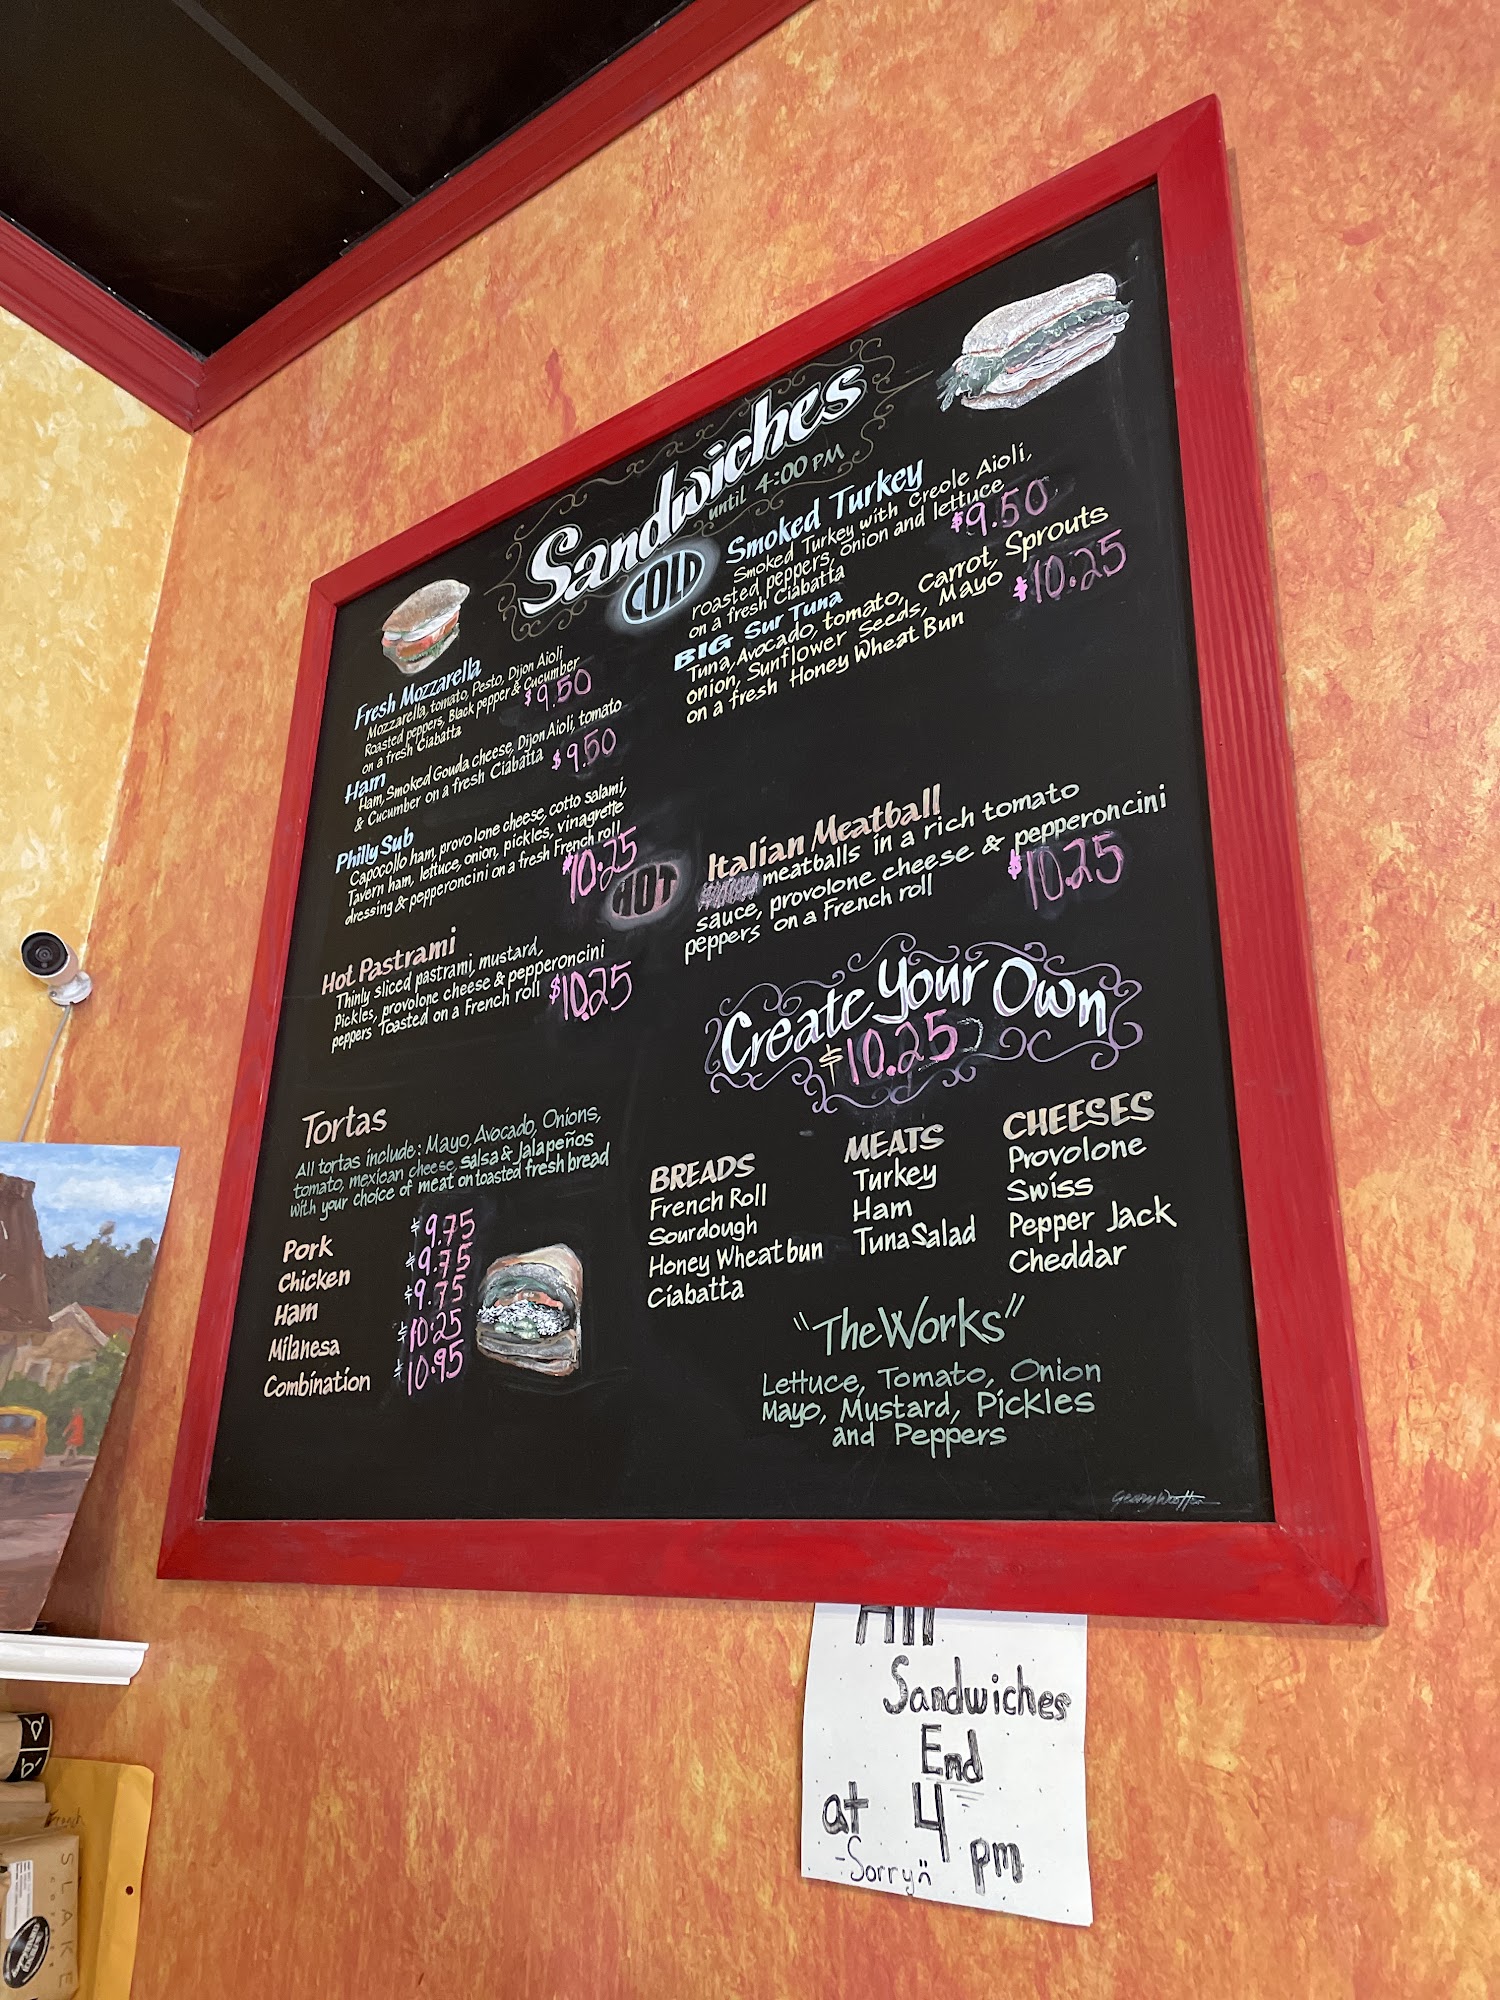 Sandwiches
until 4:00 PM
COLD
Fresh Mozzarella
Mozzarella, tomato, Pesto, Dijon Aioli
Roasted peppers, Black pepper & Cucumber
on a fresh Ciabatta
$9.50
Ham
Ham, Smoked Gouda cheese, Dijon Aioli, tomato
& Cucumber on a fresh Ciabatta $9.50
Philly Sub
Capocollo ham, provolone cheese, cotto salami,
Tavern ham, lettuce, onion, pickles, vinagrette
dressing & pepperoncini on a fresh French roll
$10.25
Smoked Turkey
Smoked Turkey with Creole Aioli,
roasted peppers, onion and lettuce
on a fresh Ciabatta
$9.50
BIG Sur Tuna
Tuna, Avocado, tomato, Carrot, Sprouts
onion, Sunflower Seeds, Mayo
on a fresh Honey Wheat Bun
$10.25
HOT
Hot Pastrami
Thinly sliced pastrami, mustard,
Pickles, provolone cheese & pepperoncini
peppers Toasted on a French roll $10.25
Italian Meatball
meatballs in a rich tomato
sauce, provolone cheese & pepperoncini
peppers on a French roll
$10.25
Tortas
All tortas include: Mayo, Avocado, Onions,
tomato, mexican cheese, salsa & Jalapeños
with your choice of meat on toasted fresh bread
Pork $9.75
Chicken $9.75
Ham $9.75
Milanesa $10.25
Combination $10.95
Create Your Own
$10.25
BREADS
French Roll
Sourdough
Honey Wheat bun
Ciabatta
MEATS
Turkey
Ham
Tuna Salad
CHEESES
Provolone
Swiss
Pepper Jack
Cheddar
"The Works"
Lettuce, Tomato, Onion
Mayo, Mustard, Pickles
and Peppers
All
Sandwiches
End
at 4 pm
-Sorry
SLAKE